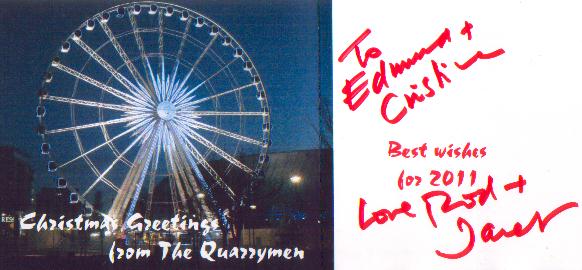 Christmas Greetings
from The Quarrymen
To
Edmund +
Cristina
Best wishes
for 2011
Love Rod +
Janet